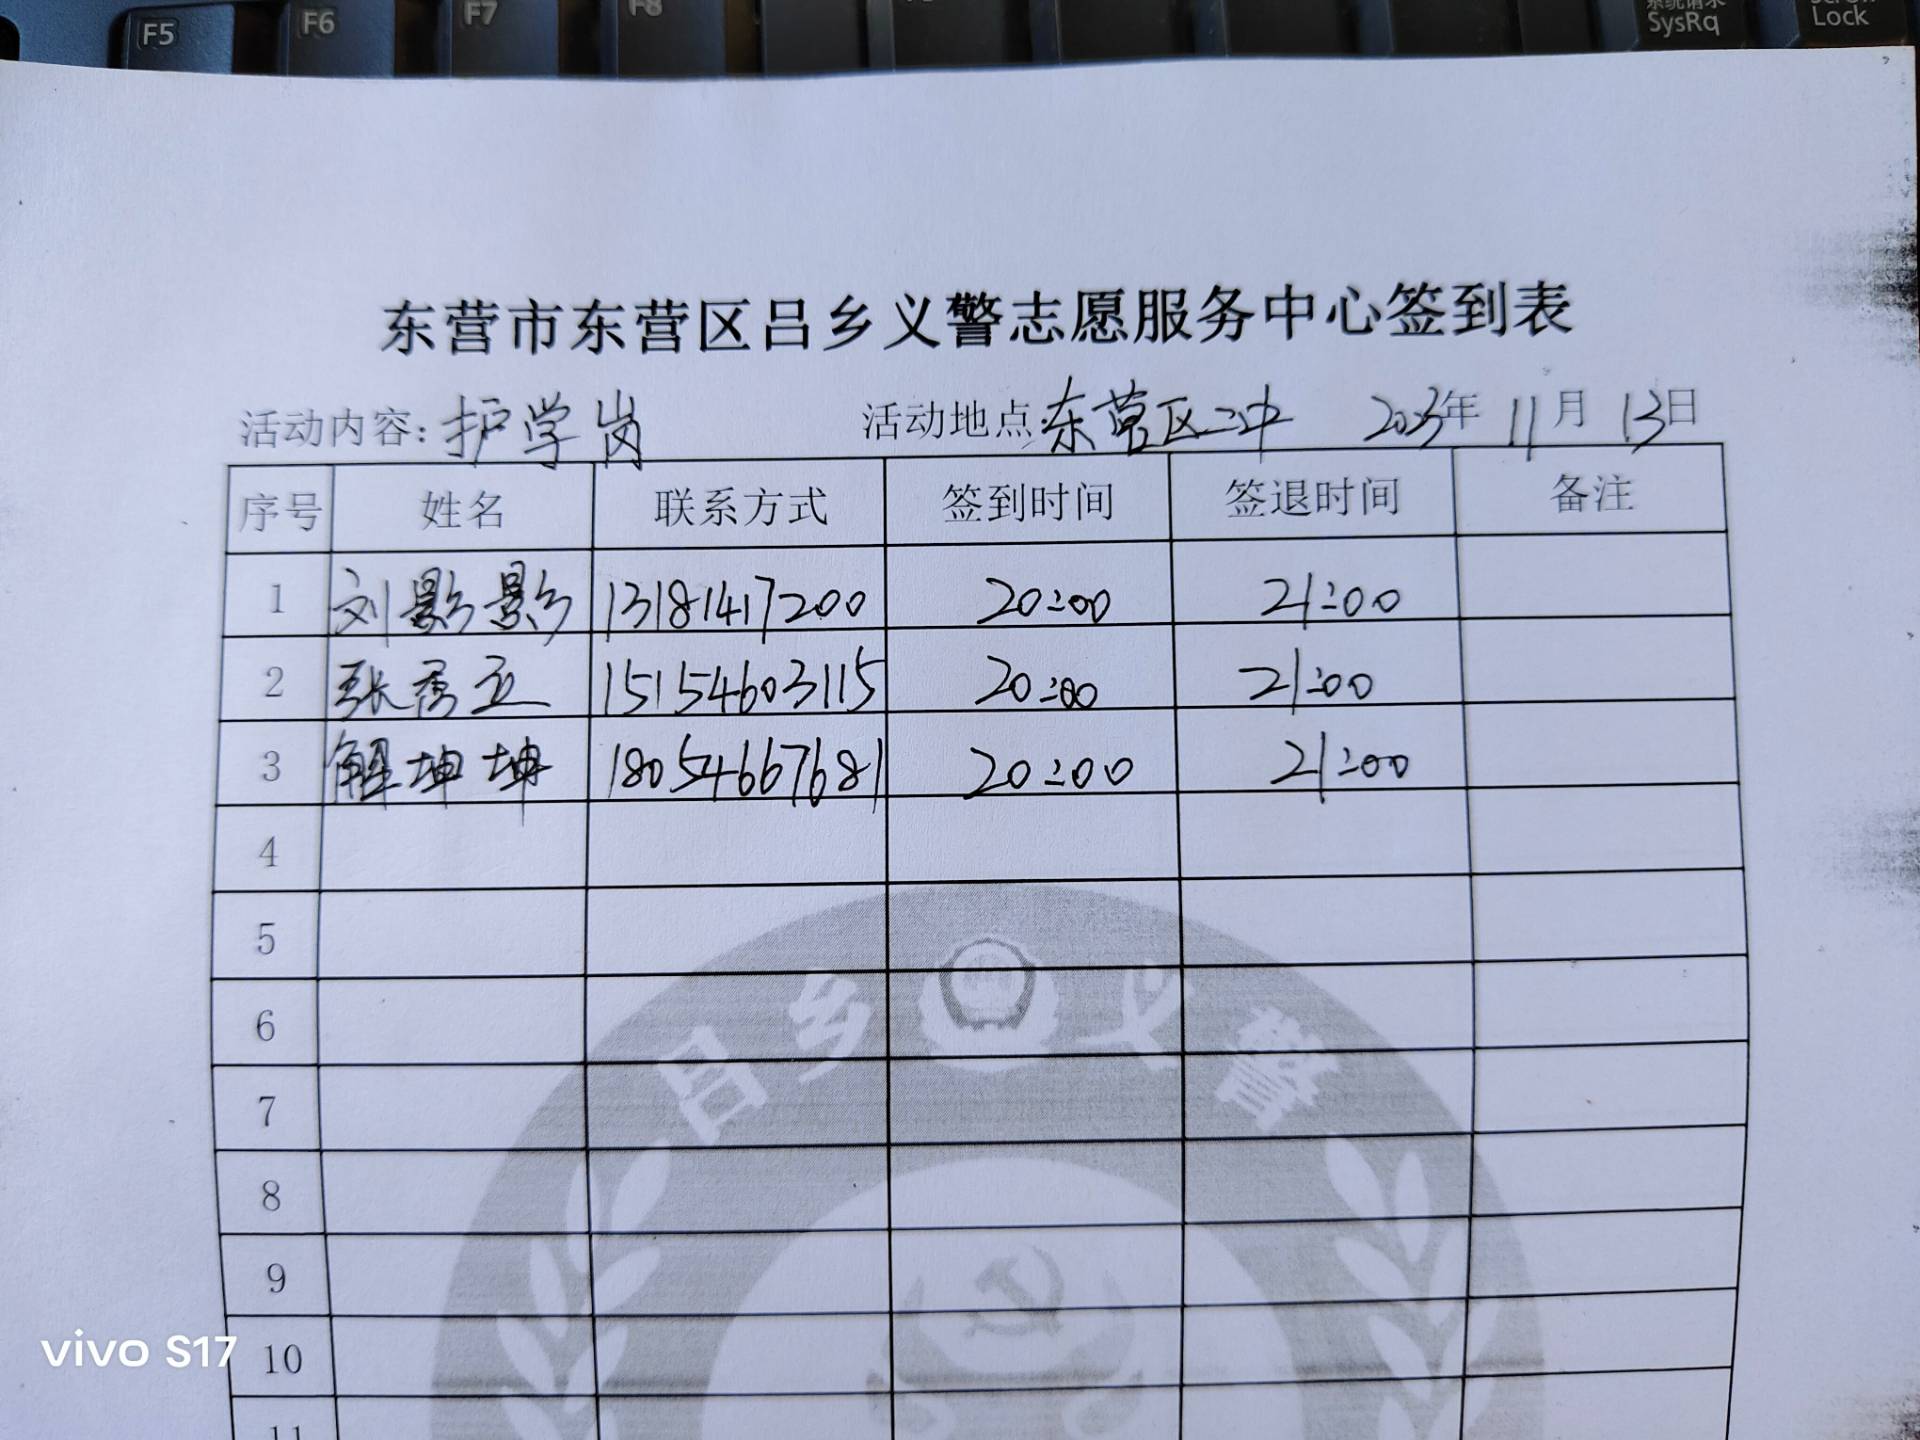 F5 F6 F7 F8 SysRq Lock
东营市东营区吕乡义警志愿服务中心签到表
活动内容:护学岗 活动地点:东营区二中 2023年 11月 13日
序号 姓名 联系方式 签到时间 签退时间 备注
1 刘影影 13181417200 20:00 21:00
2 张秀立 15154603115 20:00 21:00
3 解坤坤 18054667681 20:00 21:00
4
5
6
7
8
9
10
11
吕乡义警
vivo S17